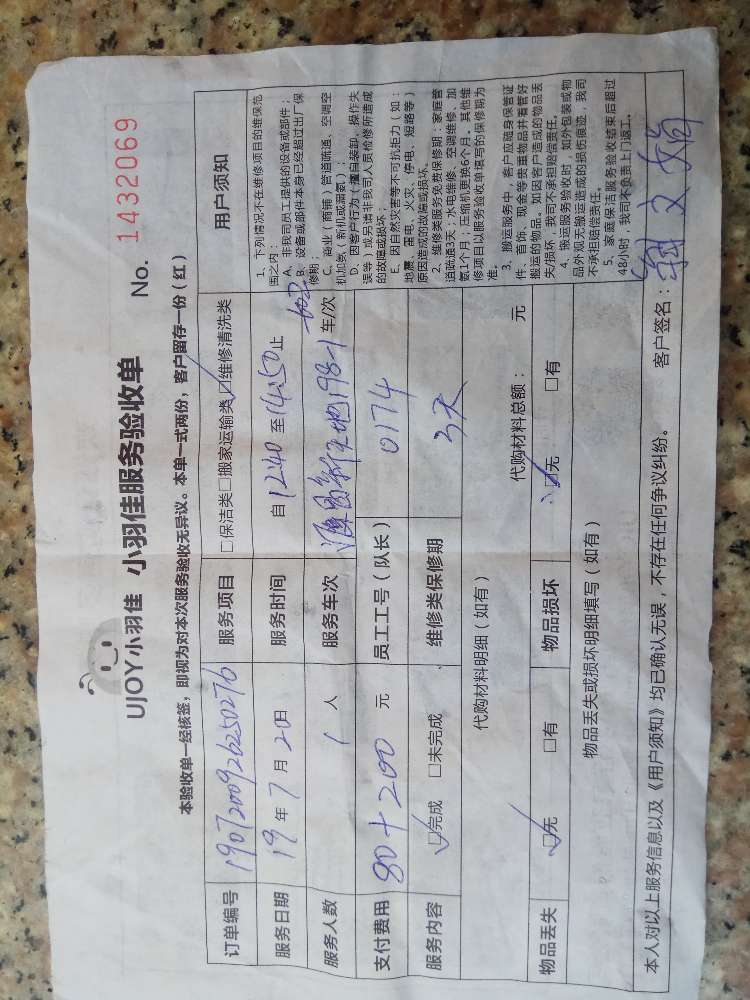 UJOY小羽佳 小羽佳服务验收单
No. 1432069
本验收单一经核签，即视为对本次服务验收无异议。本单一式两份，客户留存一份（红）
订单编号 1907200926250276 服务项目 □保洁类□搬家运输类☑维修清洗类
服务日期 19年7月20日 服务时间 自12:40至14:50止
服务人数 1人 服务车次 新天地198-1 602 车/次
支付费用 80+200 元 员工工号（队长） 0174
服务内容 ☑完成 □未完成 维修类保修期 3天
代购材料明细（如有） 代购材料总额： 元
物品丢失 ☑无 □有 物品损坏 ☑无 □有
物品丢失或损坏明细填写（如有）
用户须知
1、下列情况不在维修项目的维保范
围之内：
A、非我司员工提供的设备或部件；
B、设备或部件本身已经超过出厂保
修期；
C、商业（商铺）管道疏通、空调空
机加氨（新机或漏氨）；
D、因客户行为（擅自装卸、操作失
误等）或另请非我司人员检修所造成
的故障或损坏；
E、因自然灾害等不可抗拒力（如：
地震、雷电、火灾、停电、短路等）
原因造成的故障或损坏。
2、维修类服务免费保修期：家庭管
道疏通3天；水电维修、空调维修、加
氨1个月；压缩机更换6个月。其他维
修项目以服务验收单填写的保修期为
准。
3、搬运服务中，客户应随身保管证
件、首饰、现金等贵重物品并看管好
搬运的物品。如因客户造成的物品丢
失/损坏，我司不承担赔偿责任。
4、搬运服务验收时，如外包装或物
品外观无搬运造成的损伤痕迹，我司
不承担赔偿责任。
5、家庭保洁服务验收结束后超过
48小时，我司不负责上门返工。
本人对以上服务信息以及《用户须知》均已确认无误，不存在任何争议纠纷。 客户签名：